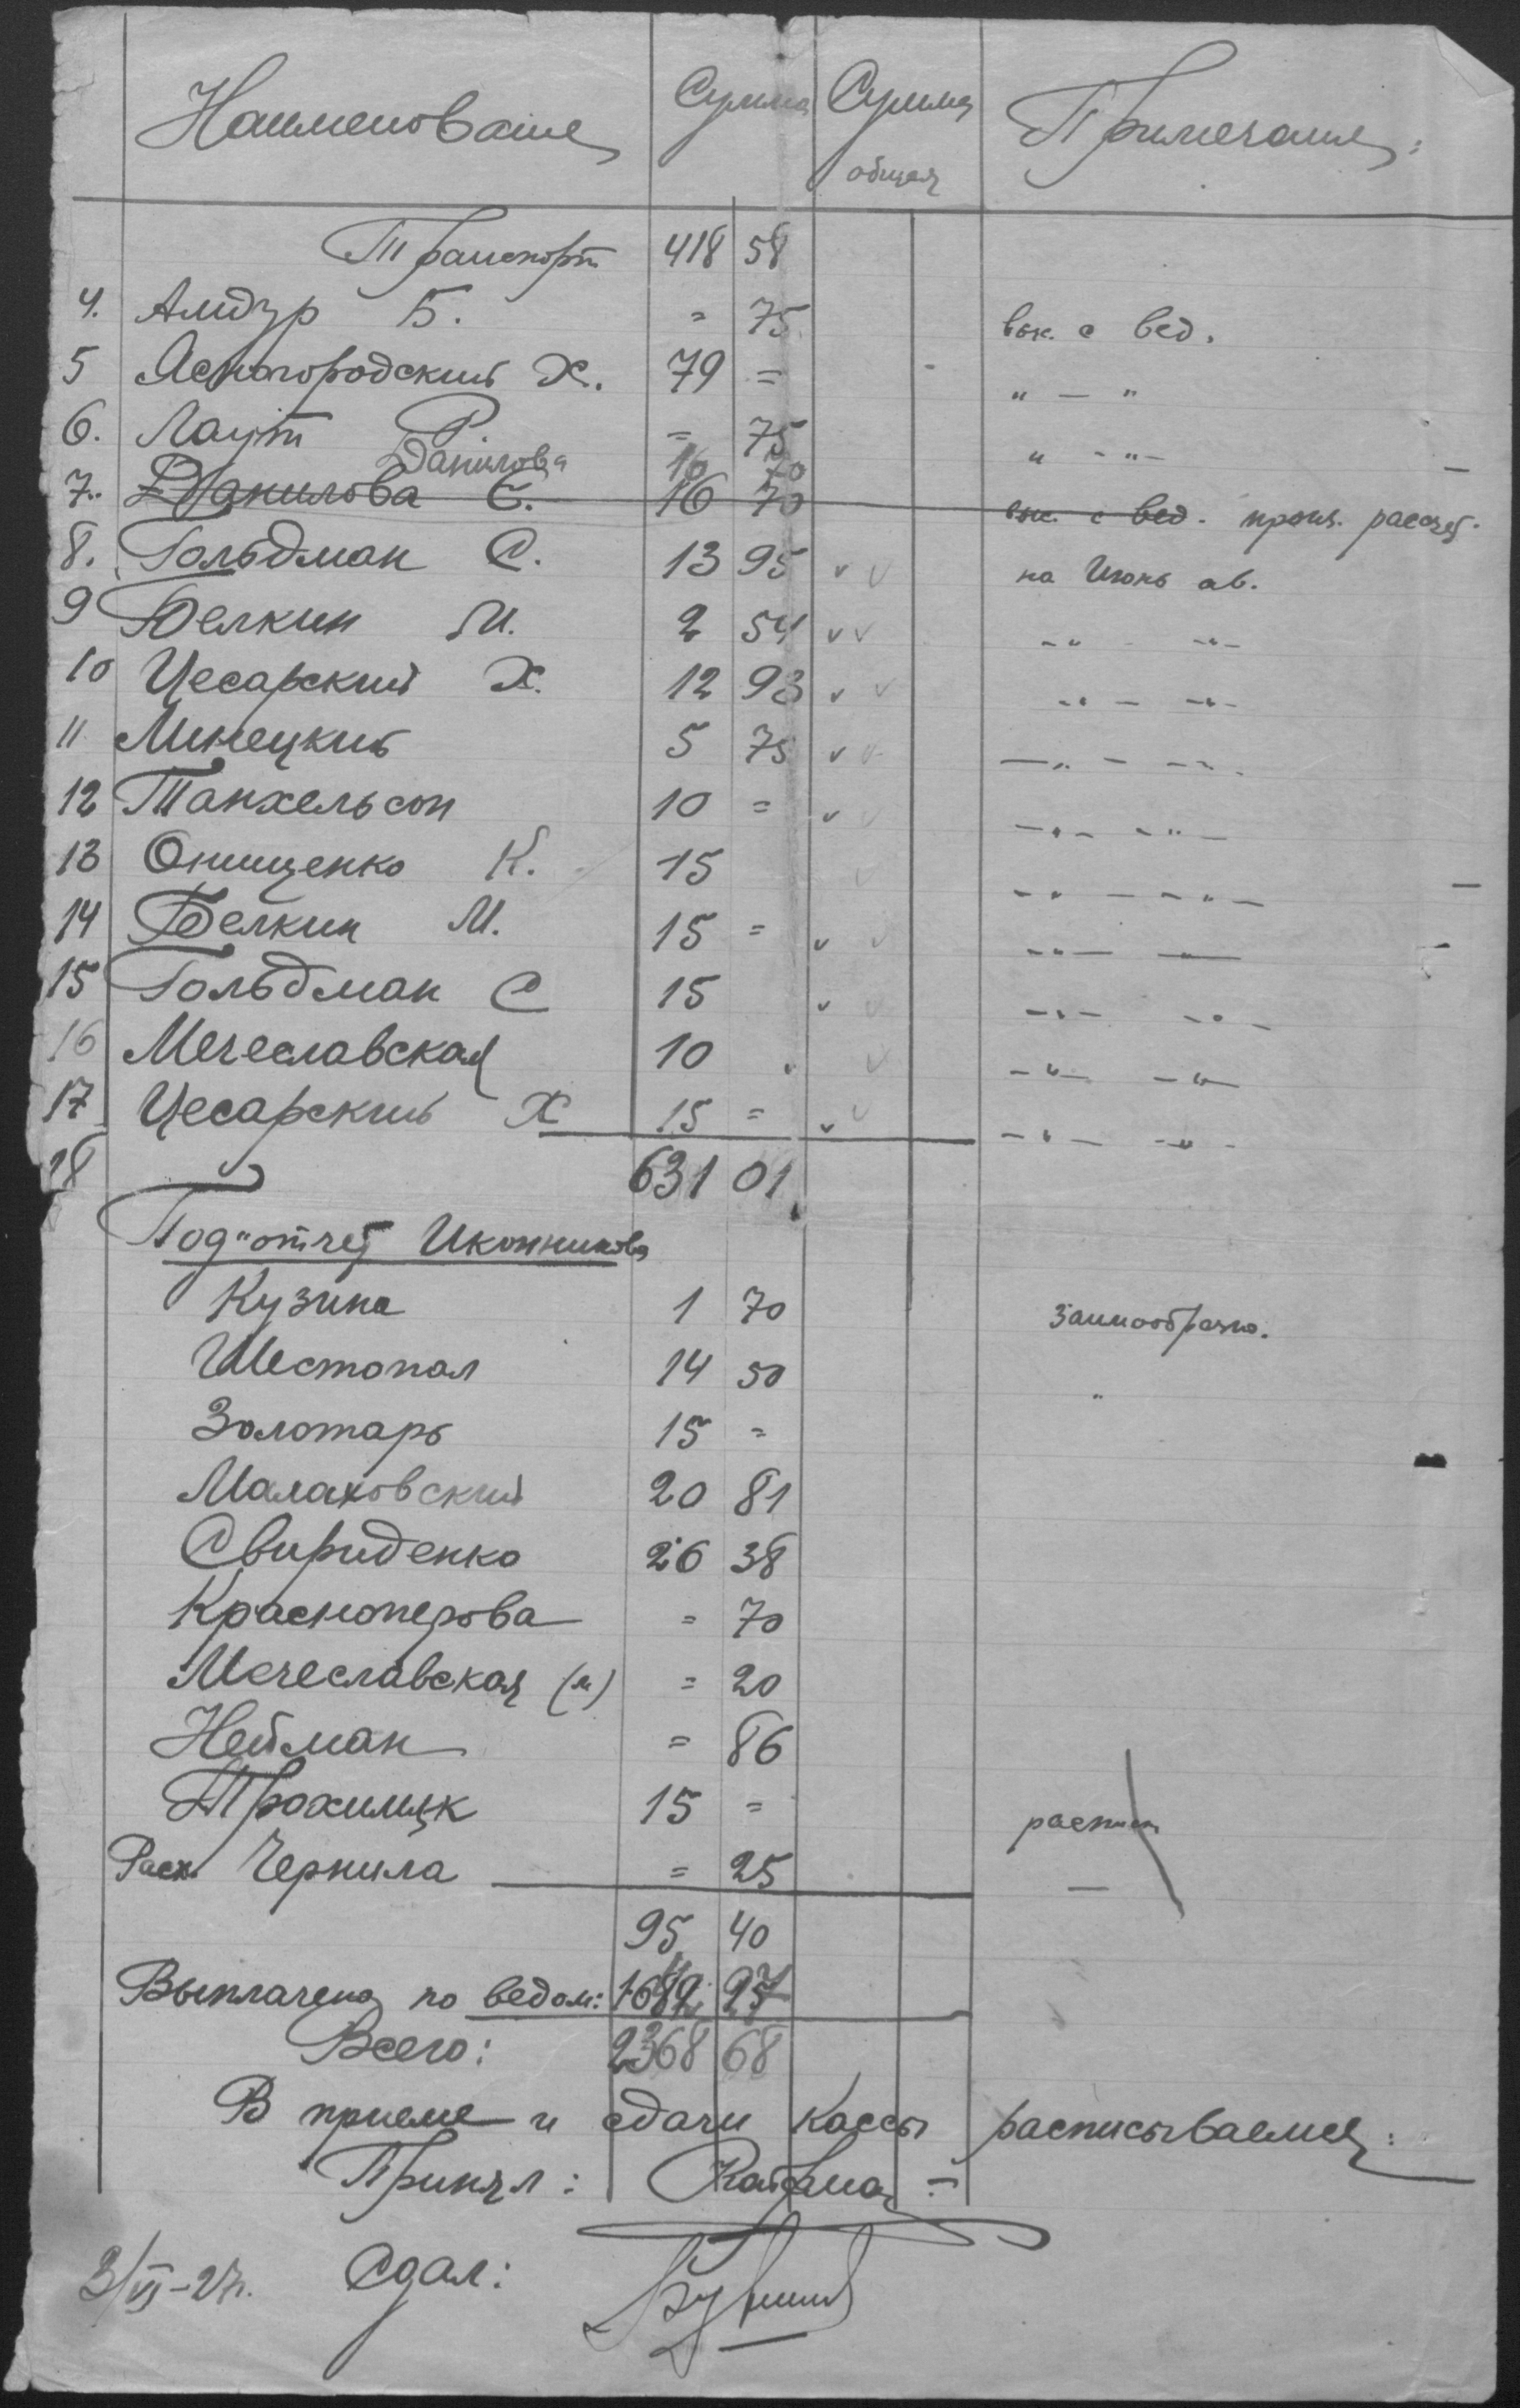 Наименование Сумма Сумма общая Примечание:
Транспорт 418 58
4. Алидур Б. = 75 вык. с вед.
5 Ясногородский Х. 79 = " — "
6. Лаут Р. = 75 " - " -
Данилова 16 70
7. Данилова Е. 16 70 вык. с вед. проиг. рассчет.
8. Гольдман С. 13 95 v v на Июнь ав.
9 Белкин М. 2 54 v v -"- -"-
10 Цесарский Х. 12 93 v v -"- -"-
11 Минецкий 5 75 v v -"- -"-
12 Танхельсон 10 = v v -"- -"-
13 Онищенко К. 15 v -"- -"-
14 Белкин М. 15 = v v -"- -"-
15 Гольдман С 15 v v -"- -"-
16 Мечеславская 10 v -"- -"-
17 Цесарский Х 15 = v v -"- -"-
18 631 01
Под"отчет Иконникова
Кузина 1 70 заимообразно.
Шестопал 14 50 "
Золотарь 15 =
Малаховский 20 81
Свириденко 26 38
Красноперова = 70
Мечеславская (м) = 20
Нейман = 86
Трохимчук 15 =
Расх. Чернила = 25
95 40
Выплачено по ведом: 27
Всего: 2368 68
В приеме и сдачи кассы расписываемся:
Принял:
3/VI-27г. Сдал: